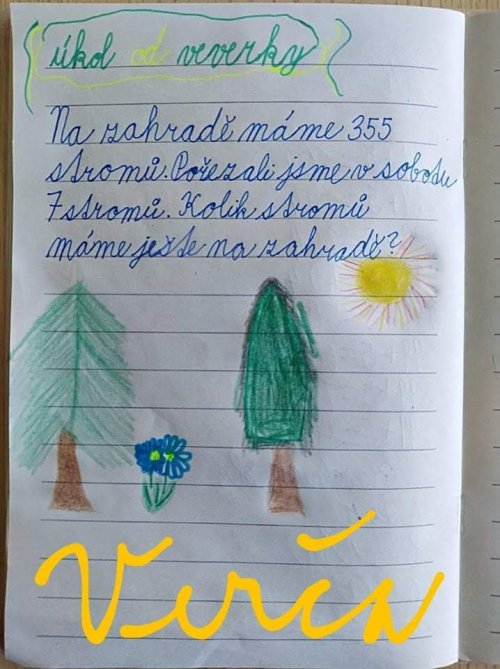 úkol od veverky
Na zahradě máme 355
stromů. Pořezali jsme v sobotu
7 stromů. Kolik stromů
máme ješte na zahradě?
Verča